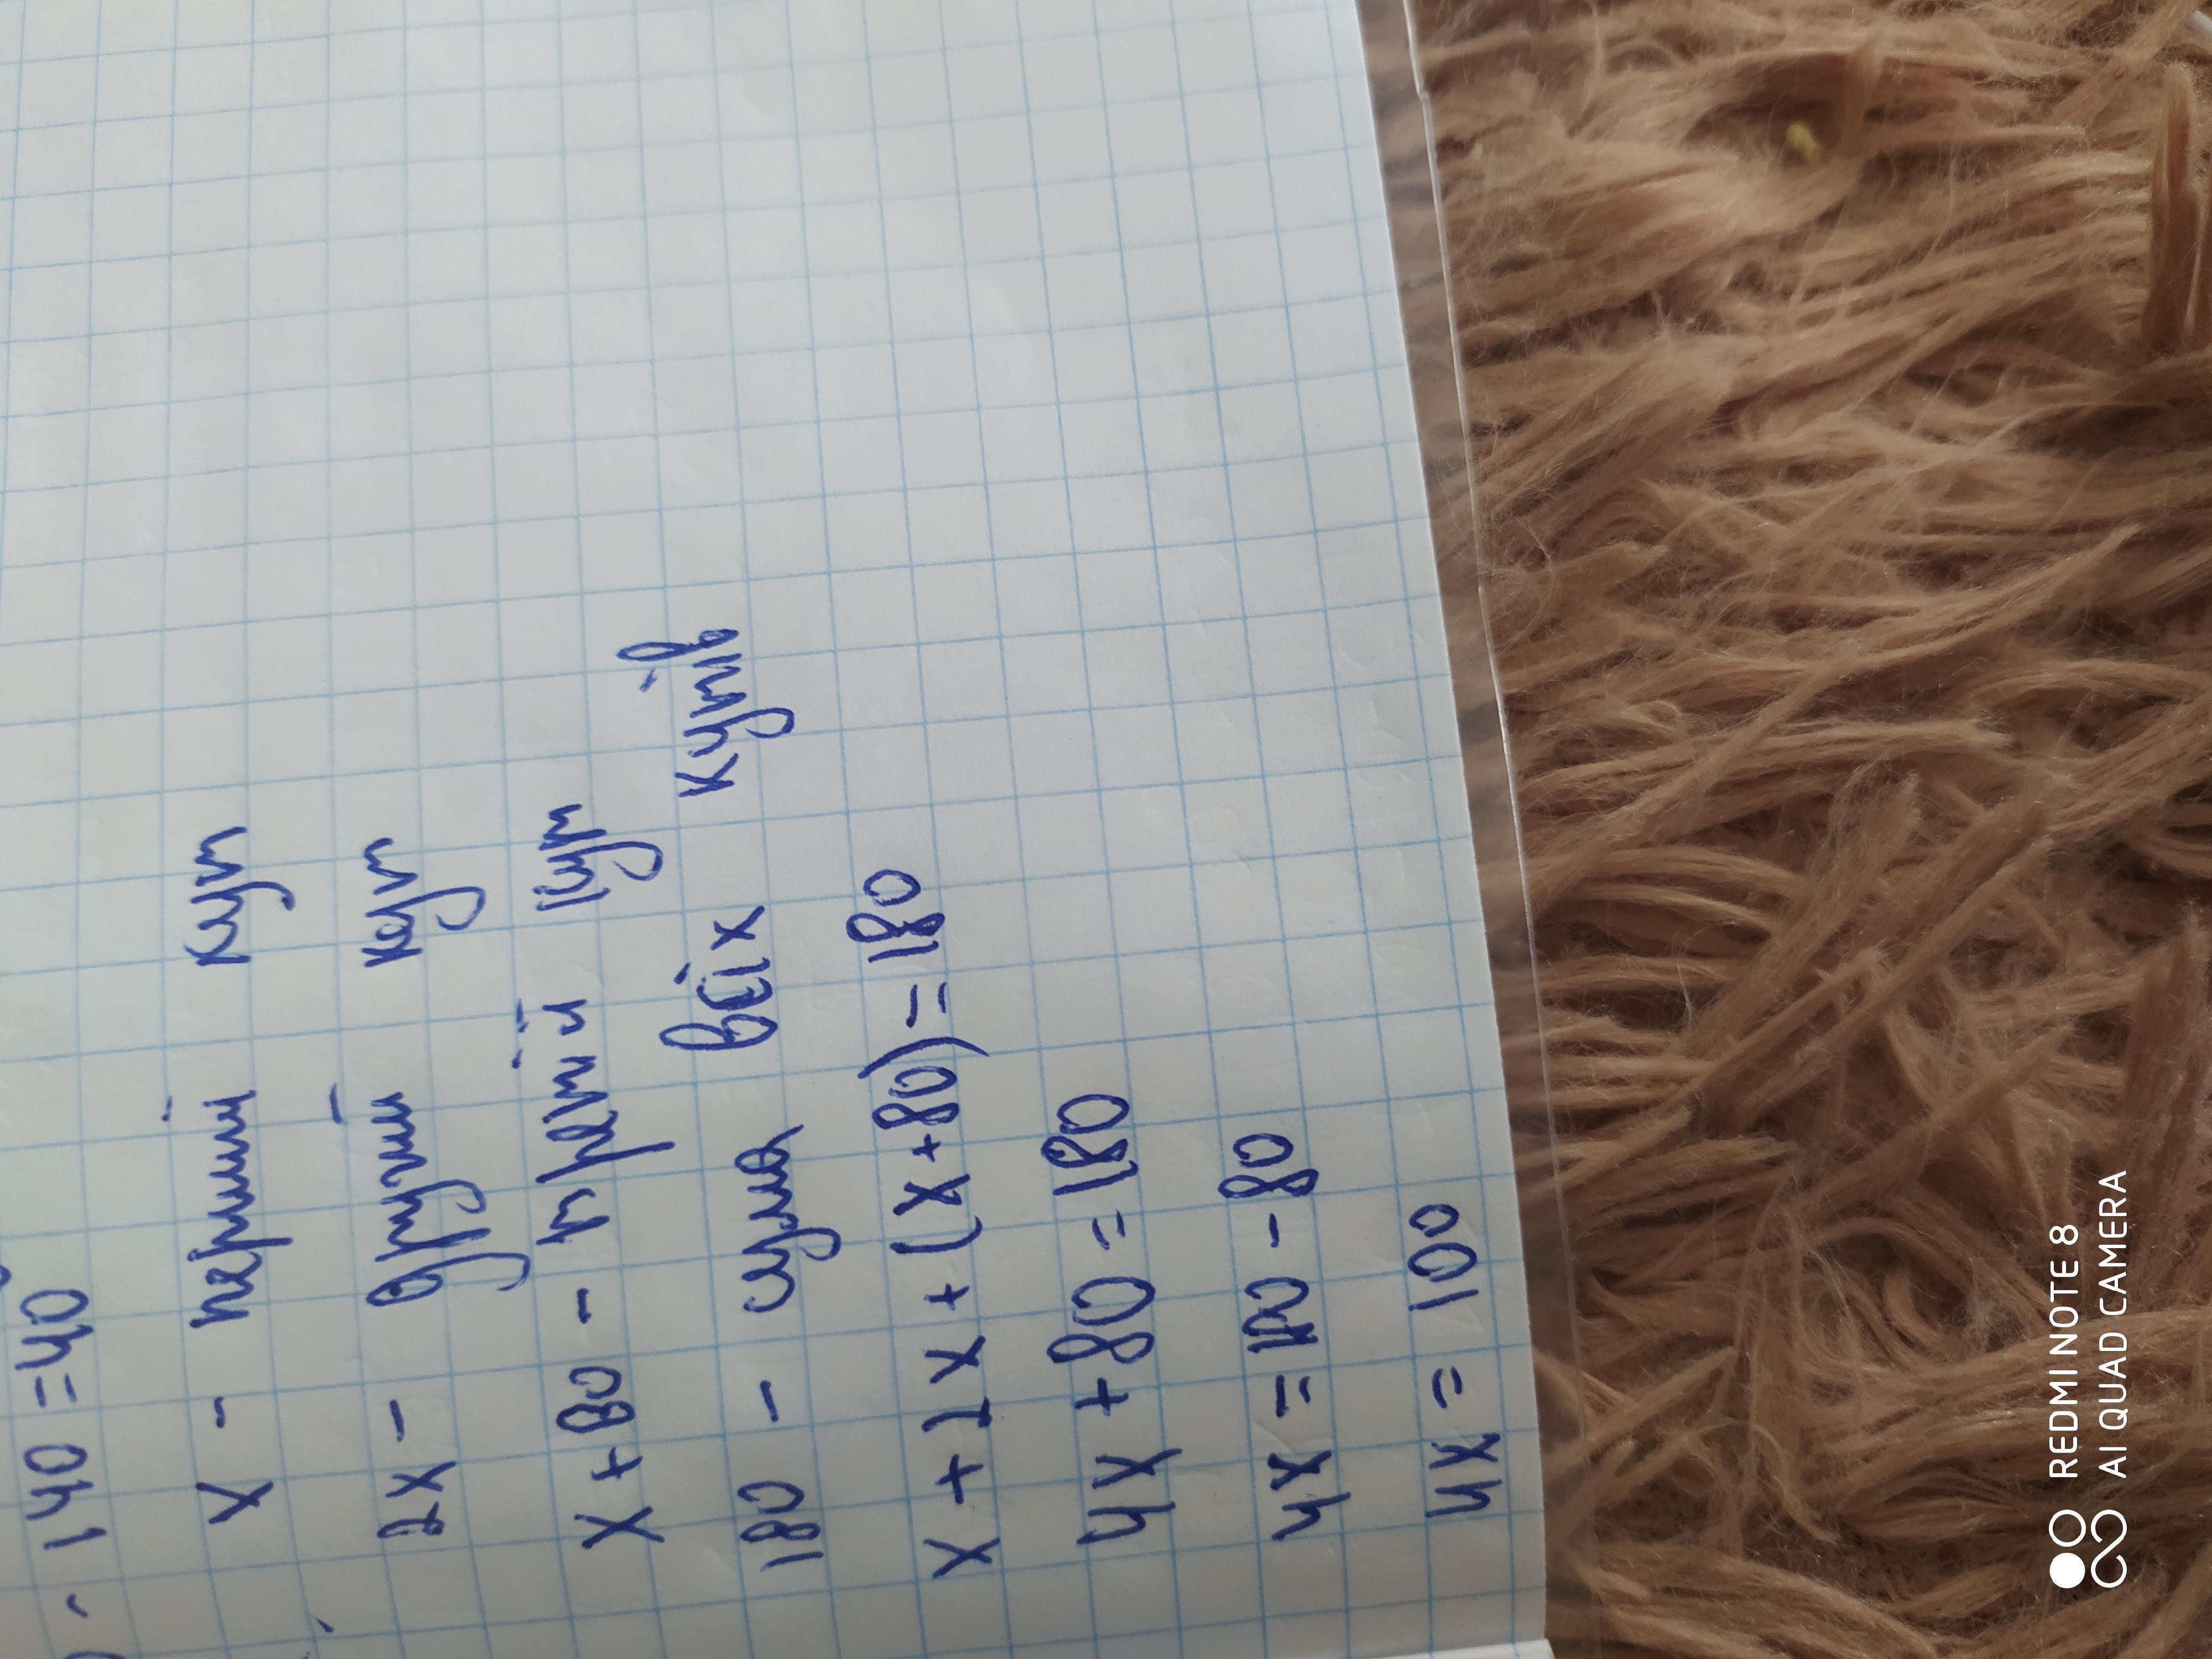 - 140 = 40
x - перший кут
2x - другий кут
x + 80 - третій кут
180 - сума всіх кутів
x + 2x + (x + 80) = 180
4x + 80 = 180
4x = 180 - 80
4x = 100
REDMI NOTE 8
AI QUAD CAMERA